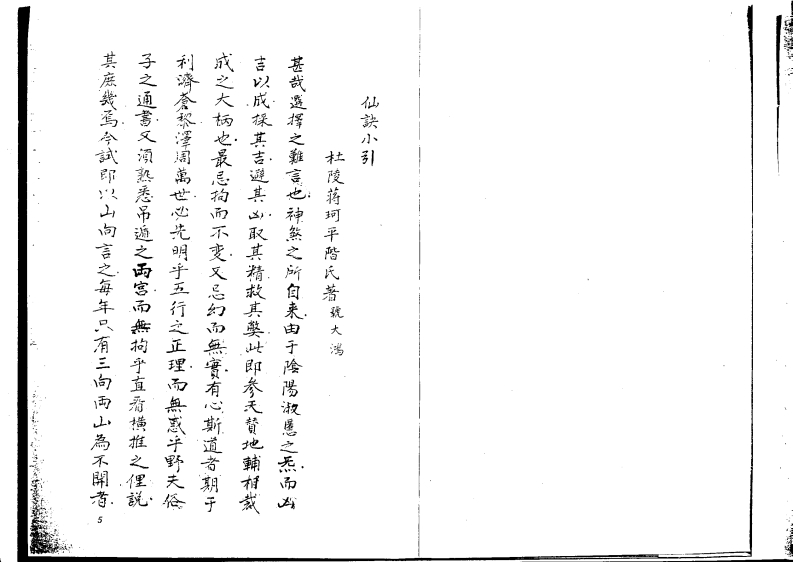 仙訣小引
杜陵蔣珂平階氏著 號大鴻
甚哉選擇之難言也神煞之所自来由于陰陽淑慝之炁而凶
吉以成採其吉避其凶取其精救其獘此即參天贊地輔相裁
成之大柄也最忌拘而不变又忌幻而無實有心斯道者期于
利濟蒼黎澤周萬世必先明乎五行之正理而無惑乎野夫俗
子之通書又須熟悉吊遁之両宮而無拘乎直看橫推之俚説
其庶幾焉今試即以山向言之每年只有三向両山為不開者
5